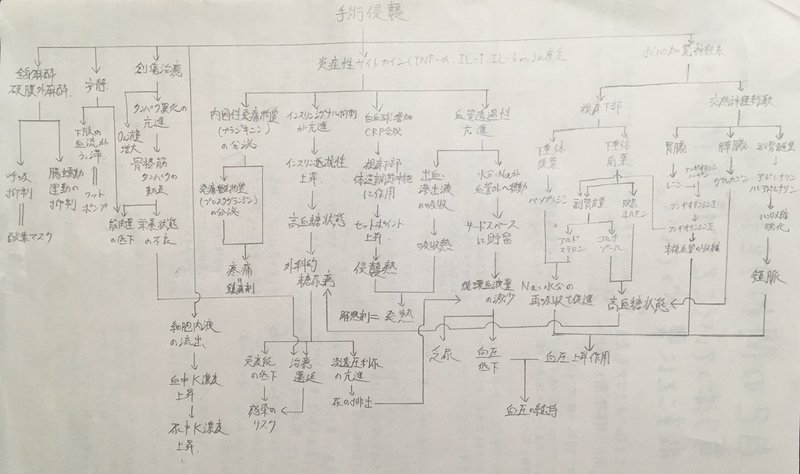 手術侵襲
全身麻酔
硬膜外麻酔
安静
創傷治癒
炎症性サイトカイン(TNF-α, IL-1, IL-6 etc)の産生
呼吸
抑制
酸素マスク
腸蠕動
運動の
抑制
下肢の
血流が
フット
ポンプ
筋肉量
の低下
タンパク異化の
亢進
O₂消費
増大
骨格筋
タンパクの
動員
栄養状態
の不良
内因性発痛物質
(ブラジキニン)
の分泌
発痛増強物質
(プロスタグランジン)
の分泌
疼痛
鎮痛剤
インスリンシグナル抑制
が亢進
インスリン抵抗性
上昇
高血糖状態
外科的
糖尿病
白血球増加
CRP合成
視床下部
体温調節中枢
に作用
セットポイント
上昇
侵襲熱
解熱剤=発熱
血管透過性
亢進
出血・
滲出液
の吸収
吸収熱
水分・Naが
血管外へ移動
サードスペース
に貯留
循環血液量
の減少
視床下部
交感神経刺激
下垂体
後葉
下垂体
前葉
バソプレシン
副腎皮質
成長
ホルモン
アルド
ステロン
コルチ
ゾール
Na・水分の
再吸収を促進
高血糖状態
腎臓
レニン
アンギオテンシンⅡ
末梢血管の収縮
膵臓
グルカゴン
副腎髄質
アドレナリン
ノルアドレナリン
心収縮
強化
頻脈
細胞内液
の流出
血中K濃度
上昇
尿中K濃度
上昇
免疫能
の低下
感染の
リスク
治癒
遅延
浸透圧利尿
の亢進
尿の排出
乏尿
血圧
低下
血圧上昇作用
血圧の維持